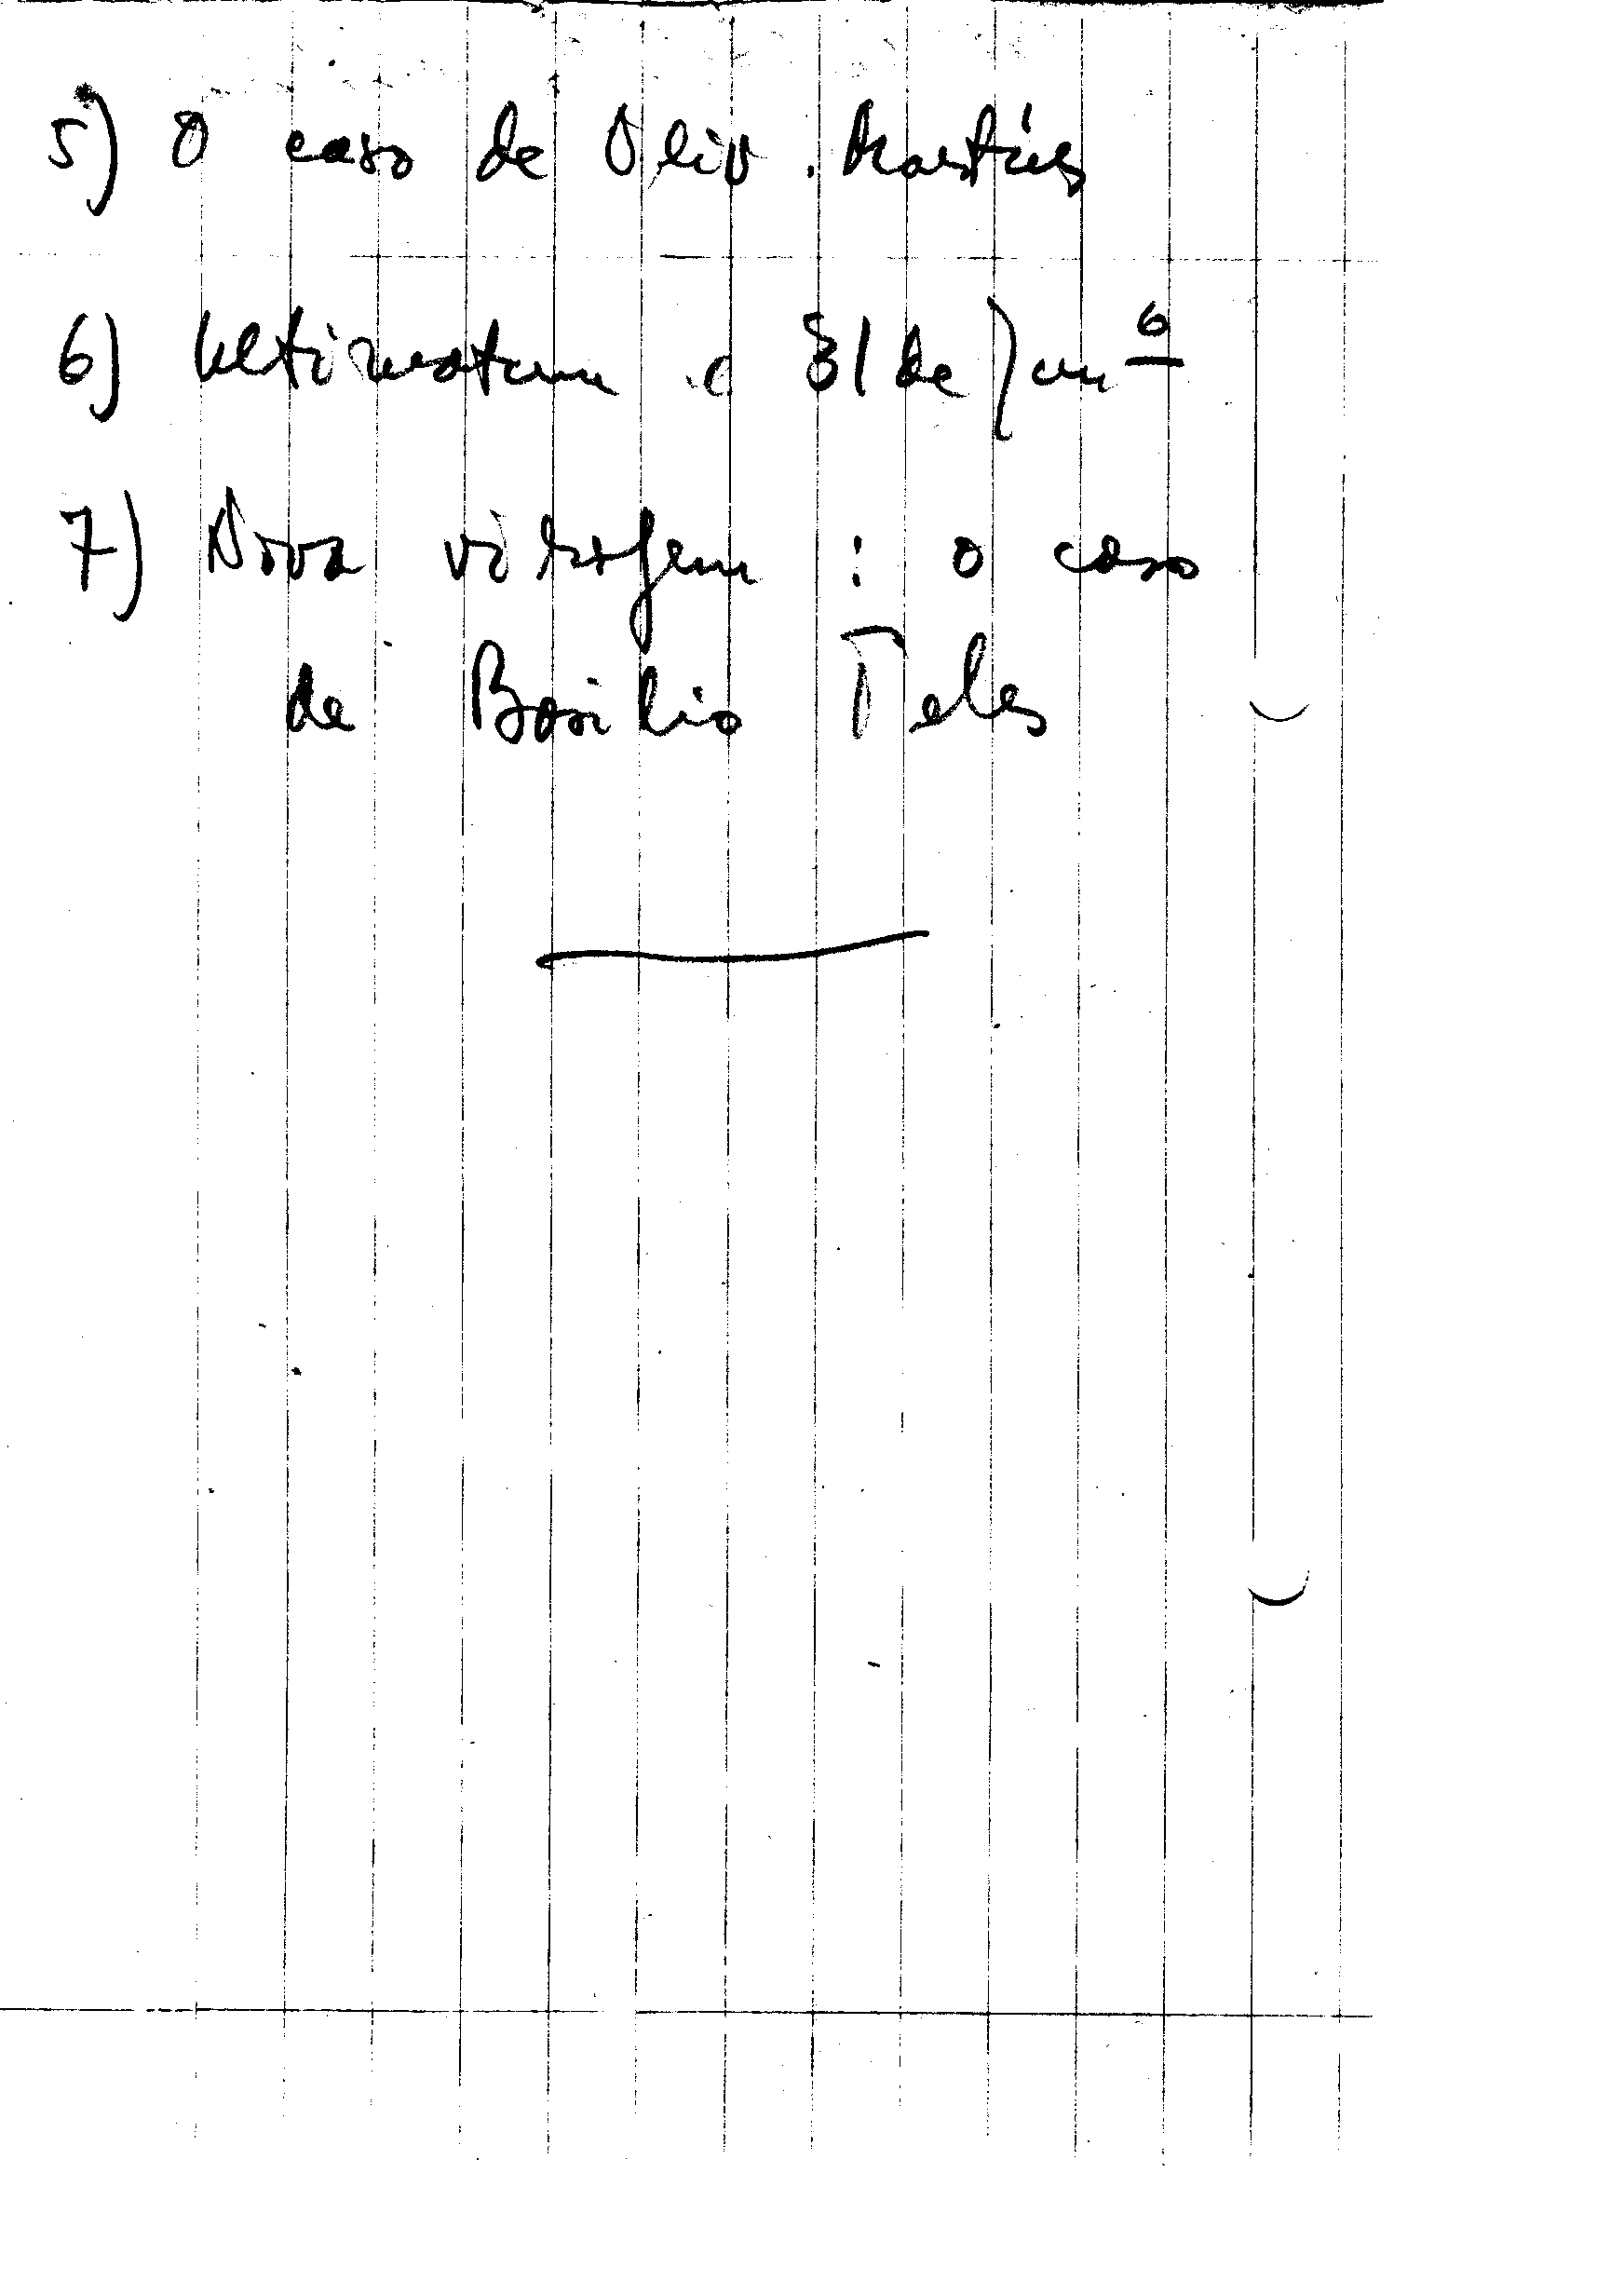 5) O caso de Oliv. Martins
6) Ultimatum e 31 de Jan º
7) Nova viragem : o caso
de Basilio Teles